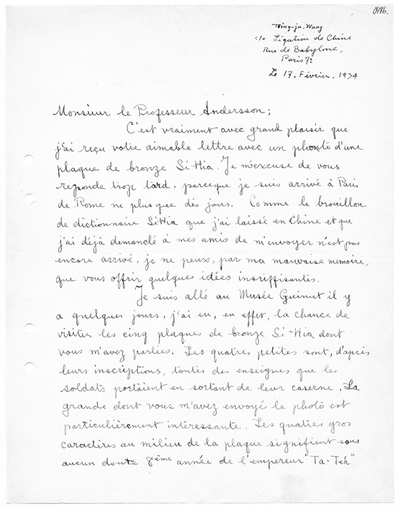 Ming-ju Wang
c/o Légation de Chine
Rue de Babylone,
Paris 7e
Le 17. Février, 1934
Monsieur le Professeur Andersson;
C'est vraiment avec grand plaisir que
j'ai reçu votre aimable lettre avec un photo d'une
plaque de bronze Si-Hia. Je m'excuse de vous
reponde trop tard, parceque je suis arrivé à Paris
de Rome ne plus que dis jours. Comme le brouillon
de dictionnaire Si Hia que j'ai laissé en Chine et que
j'ai déjà demandé à mes amis de m'envoyer n'est pas
encore arrivé, je ne peux, par ma mauvaise memoire,
que vous offrir quelques idées insuffisantes.
Je suis allé au Musée Guimet il y
a quelques jours, j'ai eu, en effet, la chance de
visiter les cinq plaques de bronze Si-Hia dont
vous m'avez parlées. Les quatres petites sont, d'après
leurs inscriptions, toutes des enseignes que les
soldats portaient en sortant de leur caserne. La
grande dont vous m'avez envoyé le photo est
particulièrement intéressante. Les quatres gros
caractères au milieu de la plaque signifient sans
aucun doute 8ème année de l'empereur "Ta-Teh"